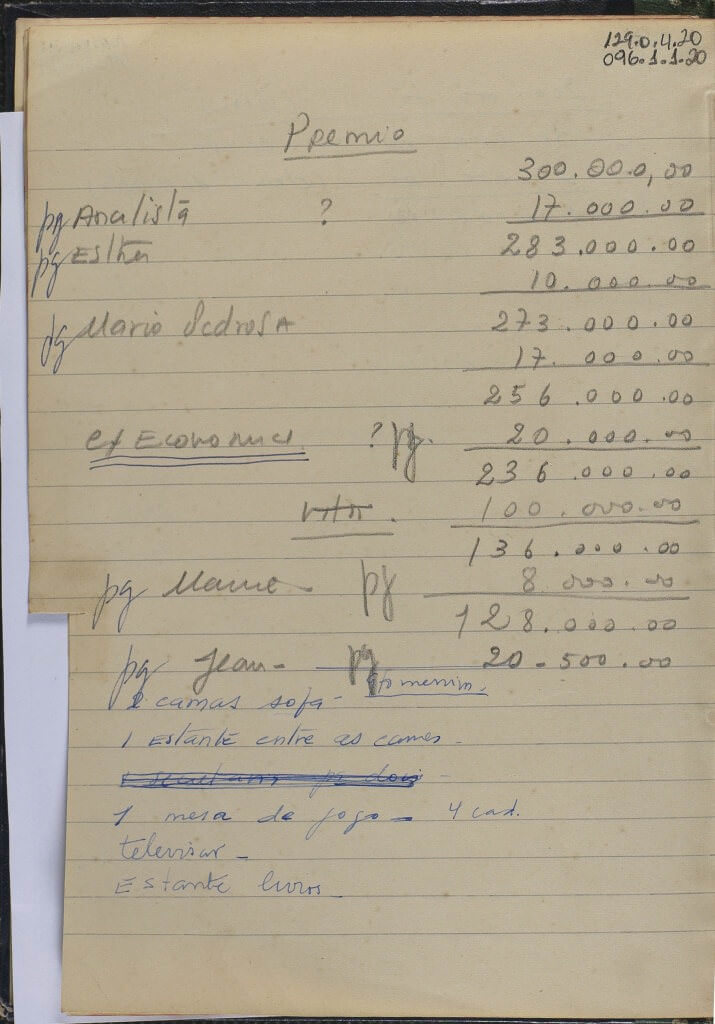 129.0.4.20
096.1.1.20
Premio
300.000,00
pg Analista ? 17.000.00
pg Esther 283.000.00
10.000.00
pg Mario Pedrosa 273.000.00
17.000.00
256.000.00
Cx Economica ? pg. 20.000.00
236.000.00
100.000.00
136.000.00
pg pg 8.000.00
128.000.00
pg Jean - pg 20-500.00
2 camas sofa -
1 Estante entre as camas -
1 mesa de jogo - 4 cad.
televisor -
Estante livros -